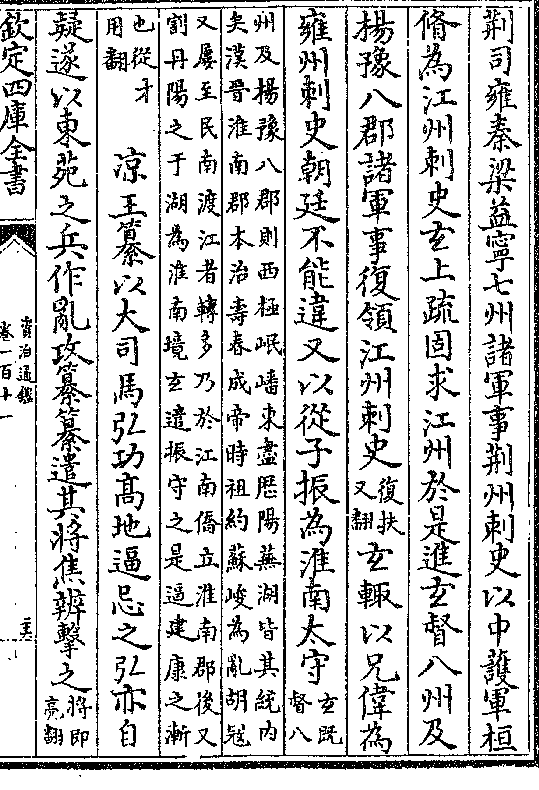 荆司雍秦梁益寧七州諸軍事荆州刺史以中護軍桓
脩為江州刺史𤣥上疏固求江州於是進𤣥督八州及
揚豫八郡諸軍事復領江州刺史復扶又翻𤣥輙以兄偉為
雍州刺史朝廷不能違又以從子振為淮南太守𤣥既督八
州及揚豫八郡則西極岷嶓東盡歴陽蕪湖皆其統内
矣漢晉淮南郡本治壽春成帝時祖約蘇峻為亂胡冦
又屢至民南渡江者轉多乃於江南僑立淮南郡後又
割丹陽之于湖為淮南境𤣥遣振守之是逼建康之漸
也從才用翻 凉王纂以大司馬弘功髙地逼忌之弘亦自
疑遂以東苑之兵作亂攻纂纂遣其將焦辨擊之將即亮翻
欽定四庫全書
資治通鑑
卷一百十一